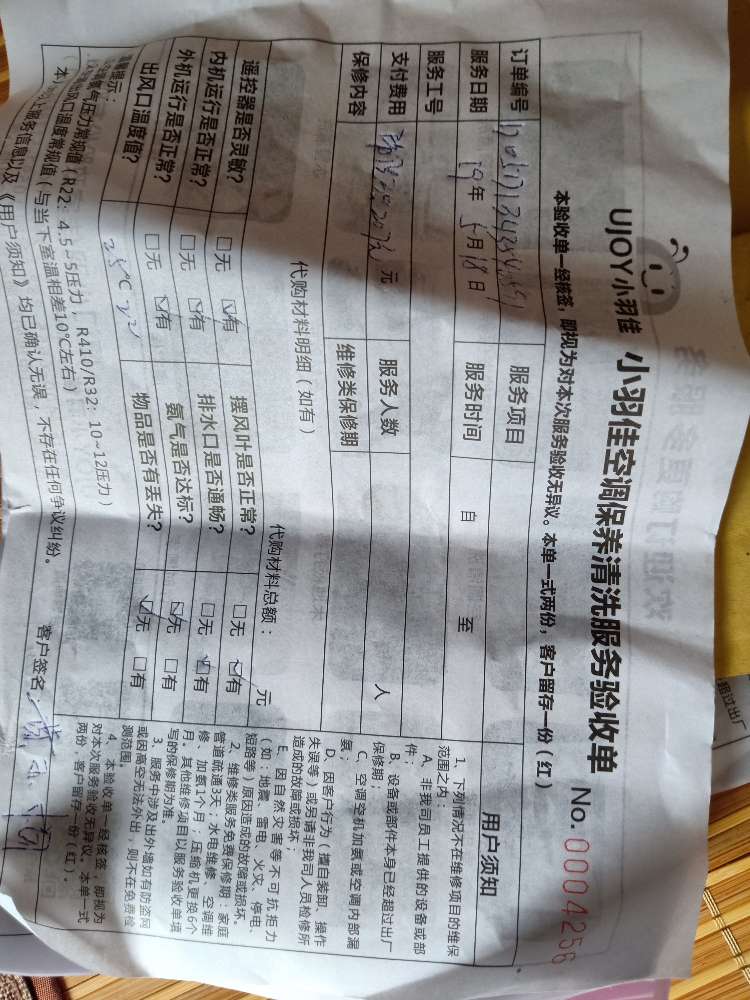 UJOY小羽佳 小羽佳空调保养清洗服务验收单 No.0004256
本验收单一经核签，即视为对本次服务验收无异议。本单一式两份，客户留存一份（红）
订单编号 服务项目
服务日期 19年 5月18日 服务时间 自 至
服务工号
支付费用 元 服务人数 人
保修内容 维修类保修期
代购材料明细（如有）
代购材料总额： 元
遥控器是否灵敏？ □无 ☑有 摆风叶是否正常？ □无 ☑有
内机运行是否正常？ □无 ☑有 排水口是否通畅？ □无 ☑有
外机运行是否正常？ □无 ☑有 氨气是否达标？ ☑无 □有
出风口温度值？ 25℃ 物品是否有丢失？ ☑无 □有
提示：
氨气压力常规值（R22：4.5~5压力，R410/R32：10~12压力）
出风口温度常规值（与当下室温相差10℃左右）
服务信息以及《用户须知》均已确认无误，不存在任何争议纠纷。 客户签名：
用户须知
1、下列情况不在维修项目的维保
范围之内：
A、非我司员工提供的设备或部
件；
B、设备或部件本身已经超过出厂
保修期；
C、空调空机加氨或空调内部漏
氨；
D、因客户行为（擅自装卸、操作
失误等）或另请非我司人员检修所
造成的故障或损坏．
E、因自然灾害等不可抗拒力
（如：地震、雷电、火灾、停电、
短路等）原因造成的故障或损坏．
2、维修类服务免费保修期：家庭
管道疏通3天；水电维修、空调维
修、加氨1个月；压缩机更换6个
月。其他维修项目以服务验收单填
写的保修期为准．
3、服务中涉及出外墙如有防盗网
或因高空无法外出，则不在免费检
测范围．
4、本验收单一经核签，即视为
对本次服务验收无异议。本单一式
两份，客户留存一份（红）．
超过出厂